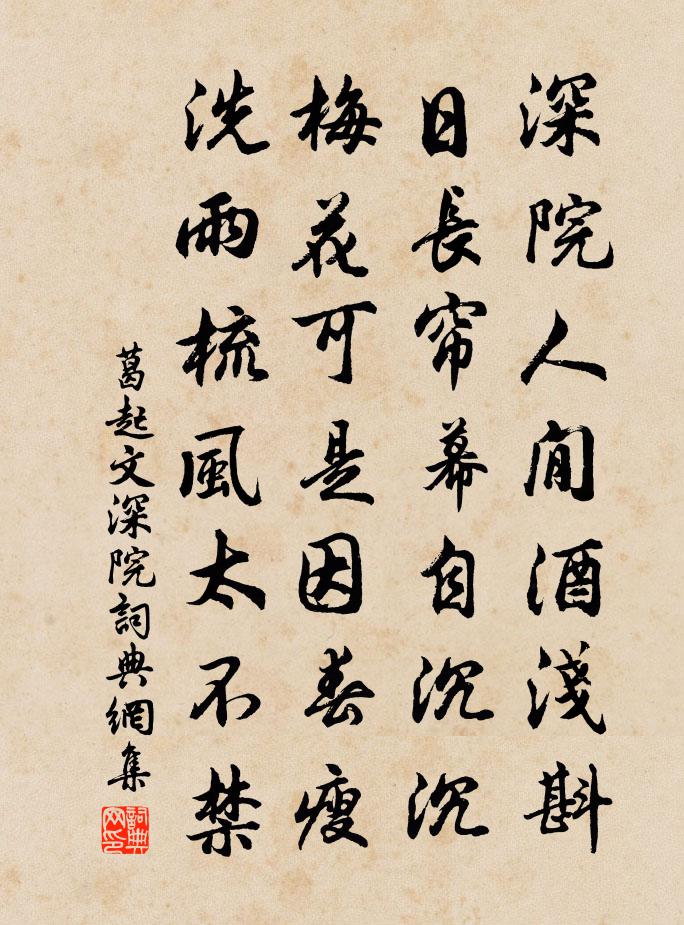 深院人閒酒淺斟
日長帘幕自沉沉
梅花可是因春瘦
洗雨梳風太不禁
葛起文深院詞典網集
詞典网印